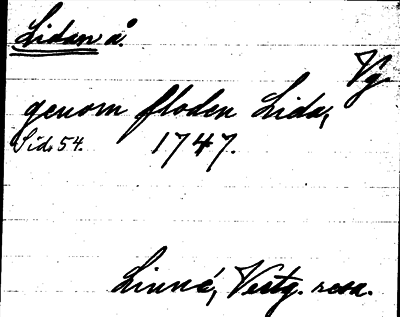 Lidan å.
Vg.
genom floden Lida,
Sid. 54. 1747.
Linné, Vestg. resa.